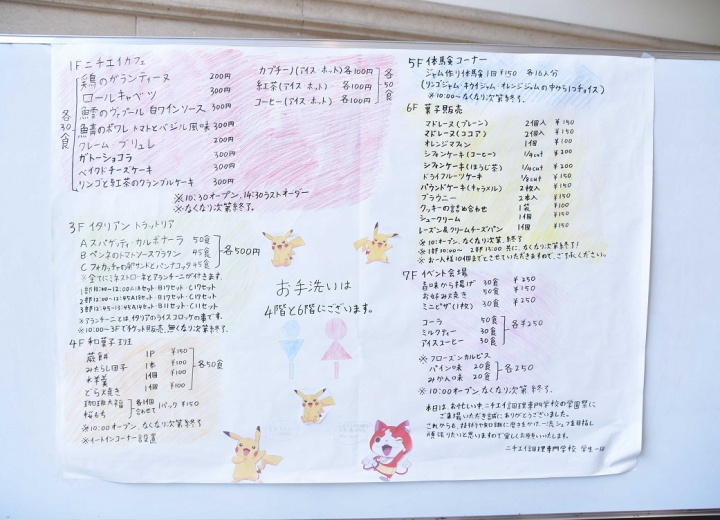 1Fニチエイカフェ
鶏のガランティーヌ 200円
ロールキャベツ 300円
鱈のヴァプール 白ワインソース 300円
鯖のポワレ トマトとバジル風味 300円
クレーム ブリュレ 200円
ガトーショコラ 300円
ベイクドチーズケーキ 300円
リンゴと紅茶のクランブルケーキ 300円
各30食
カプチーノ(アイス ホット)各100円
紅茶(アイス ホット)各100円
コーヒー(アイス ホット)各100円
各50食
※10:30オープン、14:30ラストオーダー
※なくなり次第終了。
3F イタリアン トラットリア
Aスパゲッティ カルボナーラ 50食
Bペンネのトマトソースグラタン 45食
Cフォカッチャのサンドとパンナコッタ 45食
各500円
※全てにミネストローネとアランチーニが付きます。
※アランチーニとは、イタリアのライスコロッケの事です。
※10:00~3Fでチケット販売、無くなり次第終了。
4F 和菓子
蕨餅 1P ¥150
みたらし団子 1本 ¥100
水羊羹 1個 ¥100
どら焼き 1個 ¥100
各50食
珈琲大福
桜もち
各1個合わせて 1パック ¥150
※10:00オープン、なくなり次第終了
※イートインコーナー設置
お手洗いは
4階と6階にございます。
5F 体験コーナー
ジャム作り体験 1回¥150 各16人分
(リンゴジャム・キウイジャム・オレンジジャムの中から1つチョイス)
※10:00~なくなり次第終了。
6F 菓子販売
マドレーヌ(プレーン) 2個入 ¥150
マドレーヌ(ココア) 2個入 ¥150
オレンジマフィン 1個 ¥100
シフォンケーキ(コーヒー) 1/4cut ¥200
シフォンケーキ(ほうじ茶) 1/4cut ¥200
ドライフルーツケーキ 1/8cut ¥150
パウンドケーキ(キャラメル) 2枚入 ¥150
ブラウニー 2本入 ¥150
クッキーの詰め合わせ 1袋 ¥100
シュークリーム 1個 ¥150
レーズン&クリームチーズパン 1個 ¥150
※10:オープン、なくなり次第、終了
※お一人様10個までとさせていただきますので、ご了承ください。
7F イベント会場
旨口から揚げ 30食 ¥250
お好み焼き 50食 ¥150
ミニピザ(1枚) 30食 ¥250
コーラ 50食
ミルクティー 30食
アイスコーヒー 30食
各¥250
※フローズンカルピス
パイン味 20食
みかん味 20食
各250
※10:00オープン なくなり次第 終了。
本日は、お忙しい中、ニチエイ調理専門学校の学園祭に
ご来場いただき誠にありがとうございました。
これからも、技術や知識に磨きをかけ一流シェフを目指し
頑張りたいと思いますので宜しくお願いいたします。
ニチエイ調理専門学校 学生一同